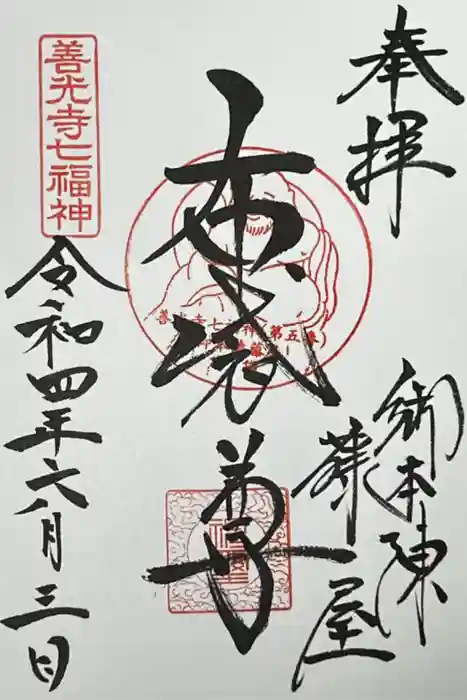 奉拝
御本陳
藤屋
布袋尊
善光寺七福神(第五番)
善光寺七福神
令和四年六八月三日